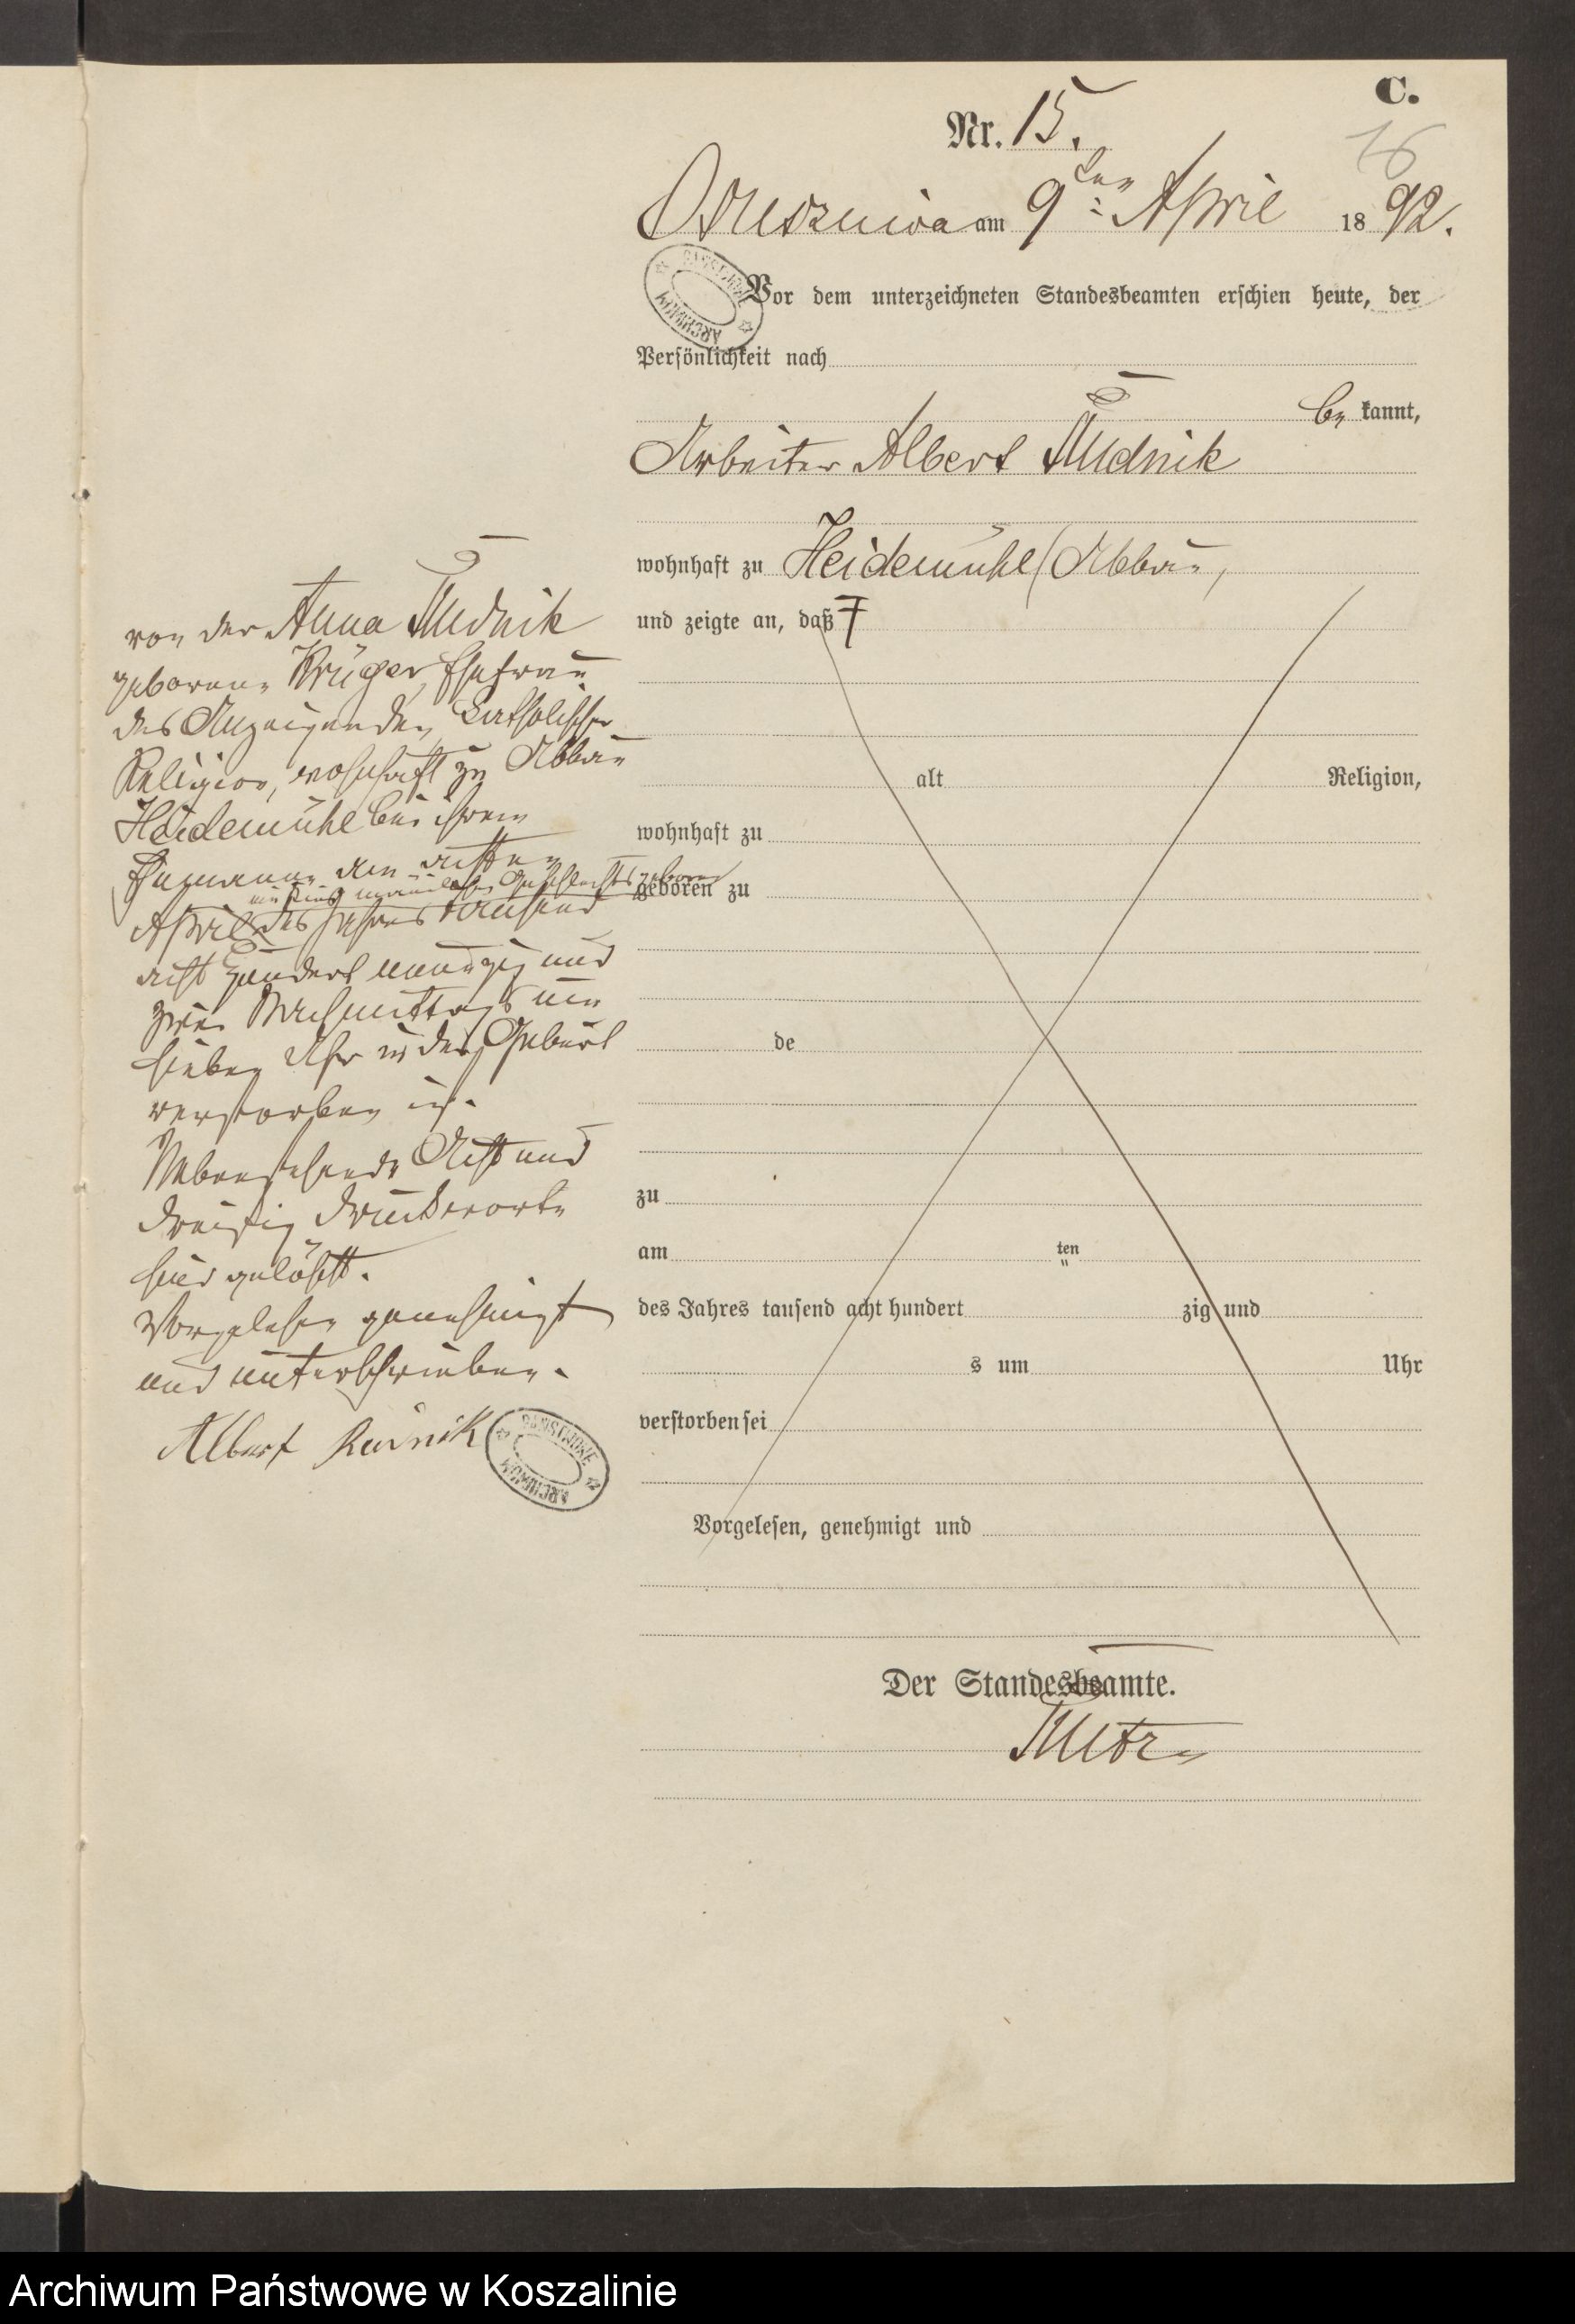 C.
Nr. 15.
16
am 9ten April 1892.
Vor dem unterzeichneten Standesbeamten erschien heute, der
Persönlichkeit nach
be kannt,
Arbeiter Albert Rudnik
wohnhaft zu Heidemühl Abbau,
und zeigte an, daß
alt Religion,
wohnhaft zu
geboren zu
de
zu
am ten
des Jahres tausend acht hundert zig und
s um Uhr
verstorben sei
Vorgelesen, genehmigt und
Der Standesbeamte.
von der Anna Rudnik
geborene Krüger, Ehefrau
des Anzeigenden, katholischer
Religion, wohnhaft zu Abbau
Heidemühl bei ihrem
Ehemanne am achten
ein Kind männlichen Geschlechts geboren
April des Jahres tausend
acht hundert neunzig und
zwei Nachmittags um
sieben Uhr in der Geburt
verstorben ist.
Nebenstehende Acht und
dreißig Druckworte
sind gelöscht.
Vorgelesen genehmigt
und unterschrieben.
Albert Rudnik
ARCHIWUM PAŃSTWOWE
ARCHIWUM PAŃSTWOWE
Archiwum Państwowe w Koszalinie